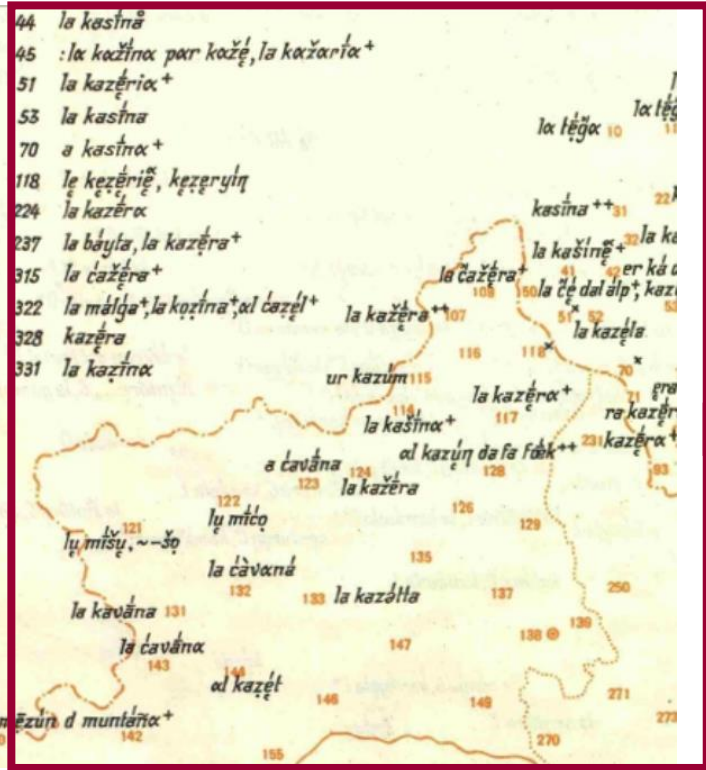 44 la kasínå
45 :lα kαžínα pαr kαžé̜, lα kαžαríα⁺
51 la kazé̜riα⁺
53 la kasína
70 a kasínα⁺
118 le̜ ke̜ze̜rie̜, ke̜ze̜ryíŋ
224 la kazé̄rα
237 la báyta, la kazé̜ra⁺
315 la ćažé̜ra⁺
322 la málga⁺, la ko̜zína⁺, αl ćaze̜l⁺
328 kazé̜ra
331 la kaz̜ínα
lα té̜ǧα 10
11
kasína⁺⁺ 31
22
32 la ka
la kašíne̜⁺
41 42
la čažé̜ra⁺
108 50
la čé̜ dal álp⁺, kaz
51 52
53
la kažé̜ra⁺⁺ 107
la kazé̜la
116 118
70
ur kazúm 115
71
la kazé̄rα⁺
114
117
la kašínα⁺
231 kazé̜rα⁺
αl kazú̜ŋ da fa fœ́k⁺⁺
a ćavána 124
128
93
123
la kažé̄ra
122
126
lu̜ míćo̜
129
121
lu̜ míšu̜, --šo̜
135
la ćàvαná
250
132
133 la kazə́tta
137
la kavána 131
138 139
la ćavánα
147
143
144
αl kaz̜é̜t
146
149
271
me̜zún d muntáñα⁺
273
142
270
155